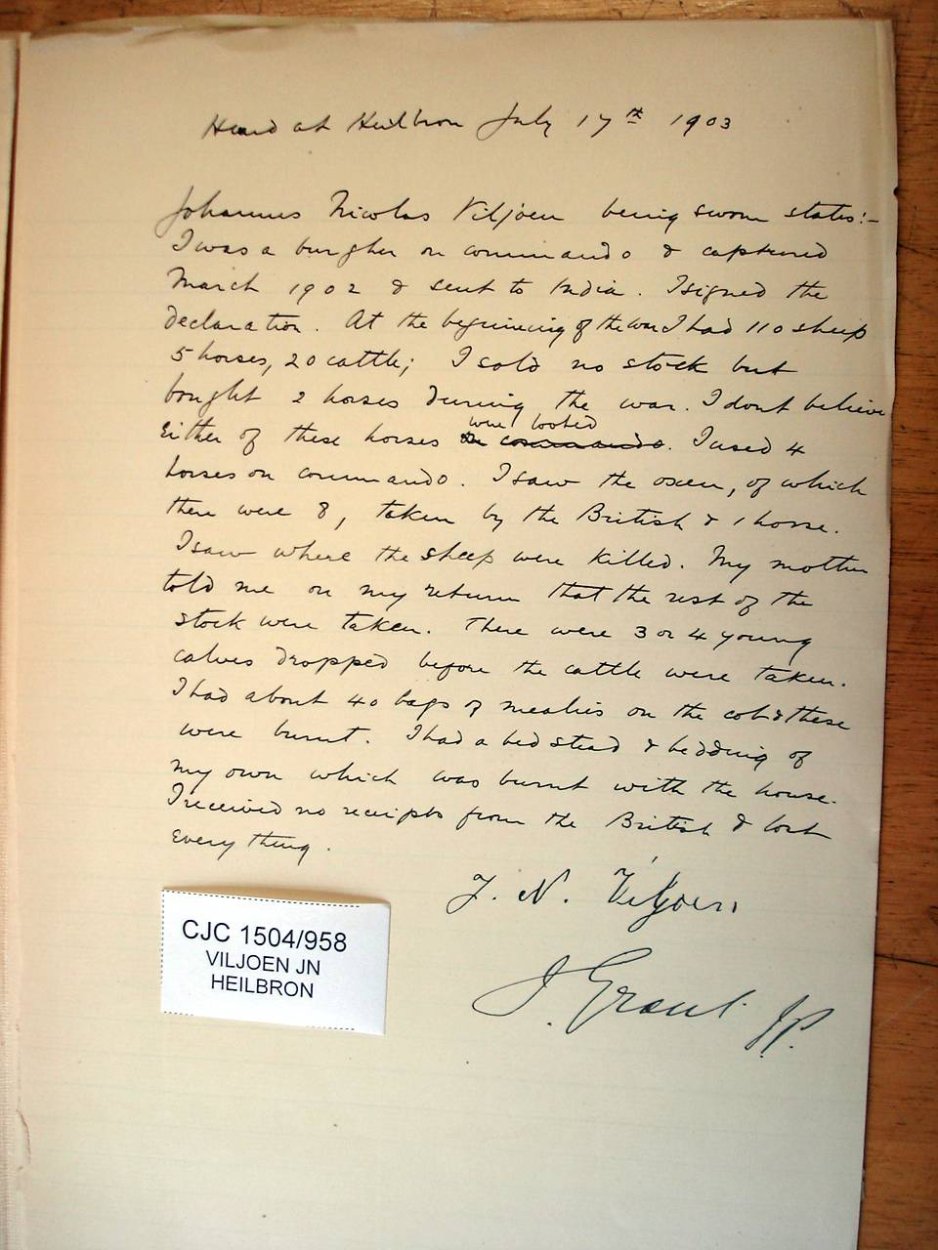 Heard at Heilbron July 17th 1903
Johannes Nicolas Viljoen being sworn states:-
I was a burgher on commando & captured
March 1902 & sent to India. I signed the
declaration. At the beginning of the war I had 110 sheep
5 horses, 20 cattle; I sold no stock but
bought 2 horses during the war. I dont believe
were looted
either of these horses on commando. I used 4
horses on commando. I saw the oxen, of which
there were 8, taken by the British & 1 horse.
I saw where the sheep were killed. My mother
told me on my return that the rest of the
stock were taken. There were 3 or 4 young
calves dropped before the cattle were taken.
I had about 40 bags of mealies on the cob & these
were burnt. I had a bed stead & bedding of
my own which was burnt with the house.
I received no receipts from the British & lost
everything.
J. N. Viljoen
J. Grant JP.
CJC 1504/958
VILJOEN JN
HEILBRON